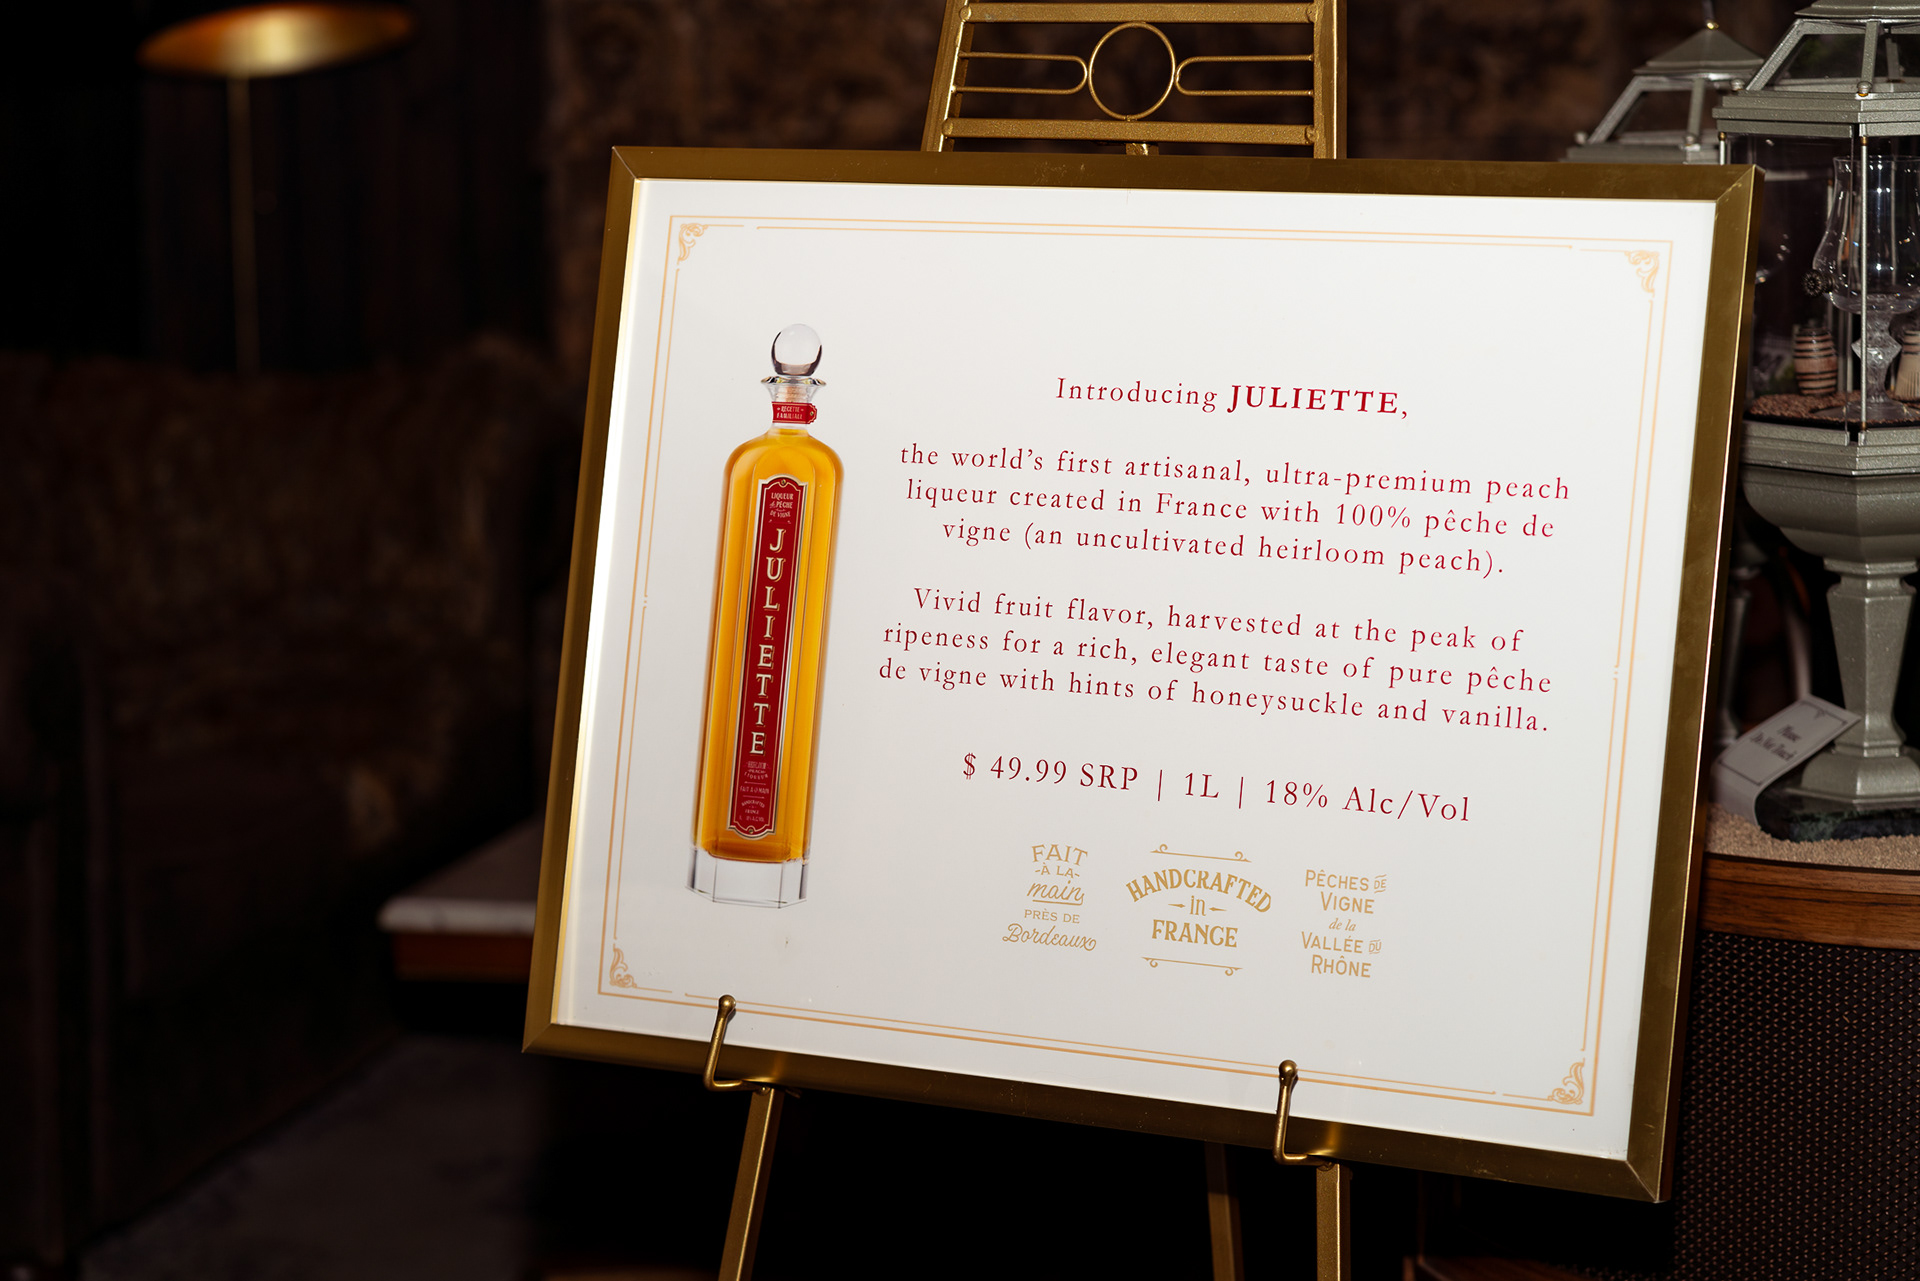 Introducing JULIETTE,
the world's first artisanal, ultra-premium peach
liqueur created in France with 100% pêche de
vigne (an uncultivated heirloom peach).
Vivid fruit flavor, harvested at the peak of
ripeness for a rich, elegant taste of pure pêche
de vigne with hints of honeysuckle and vanilla.
$ 49.99 SRP | 1L | 18% Alc/Vol
FAIT
-À LA-
main
PRÈS DE
Bordeaux
HANDCRAFTED
in
FRANCE
PÊCHES DE
VIGNE
de la
VALLÉE DU
RHÔNE
RECETTE
FAMILIALE
LIQUEUR
de PÊCHE
DE VIGNE
JULIETTE
Please
Do Not Touch